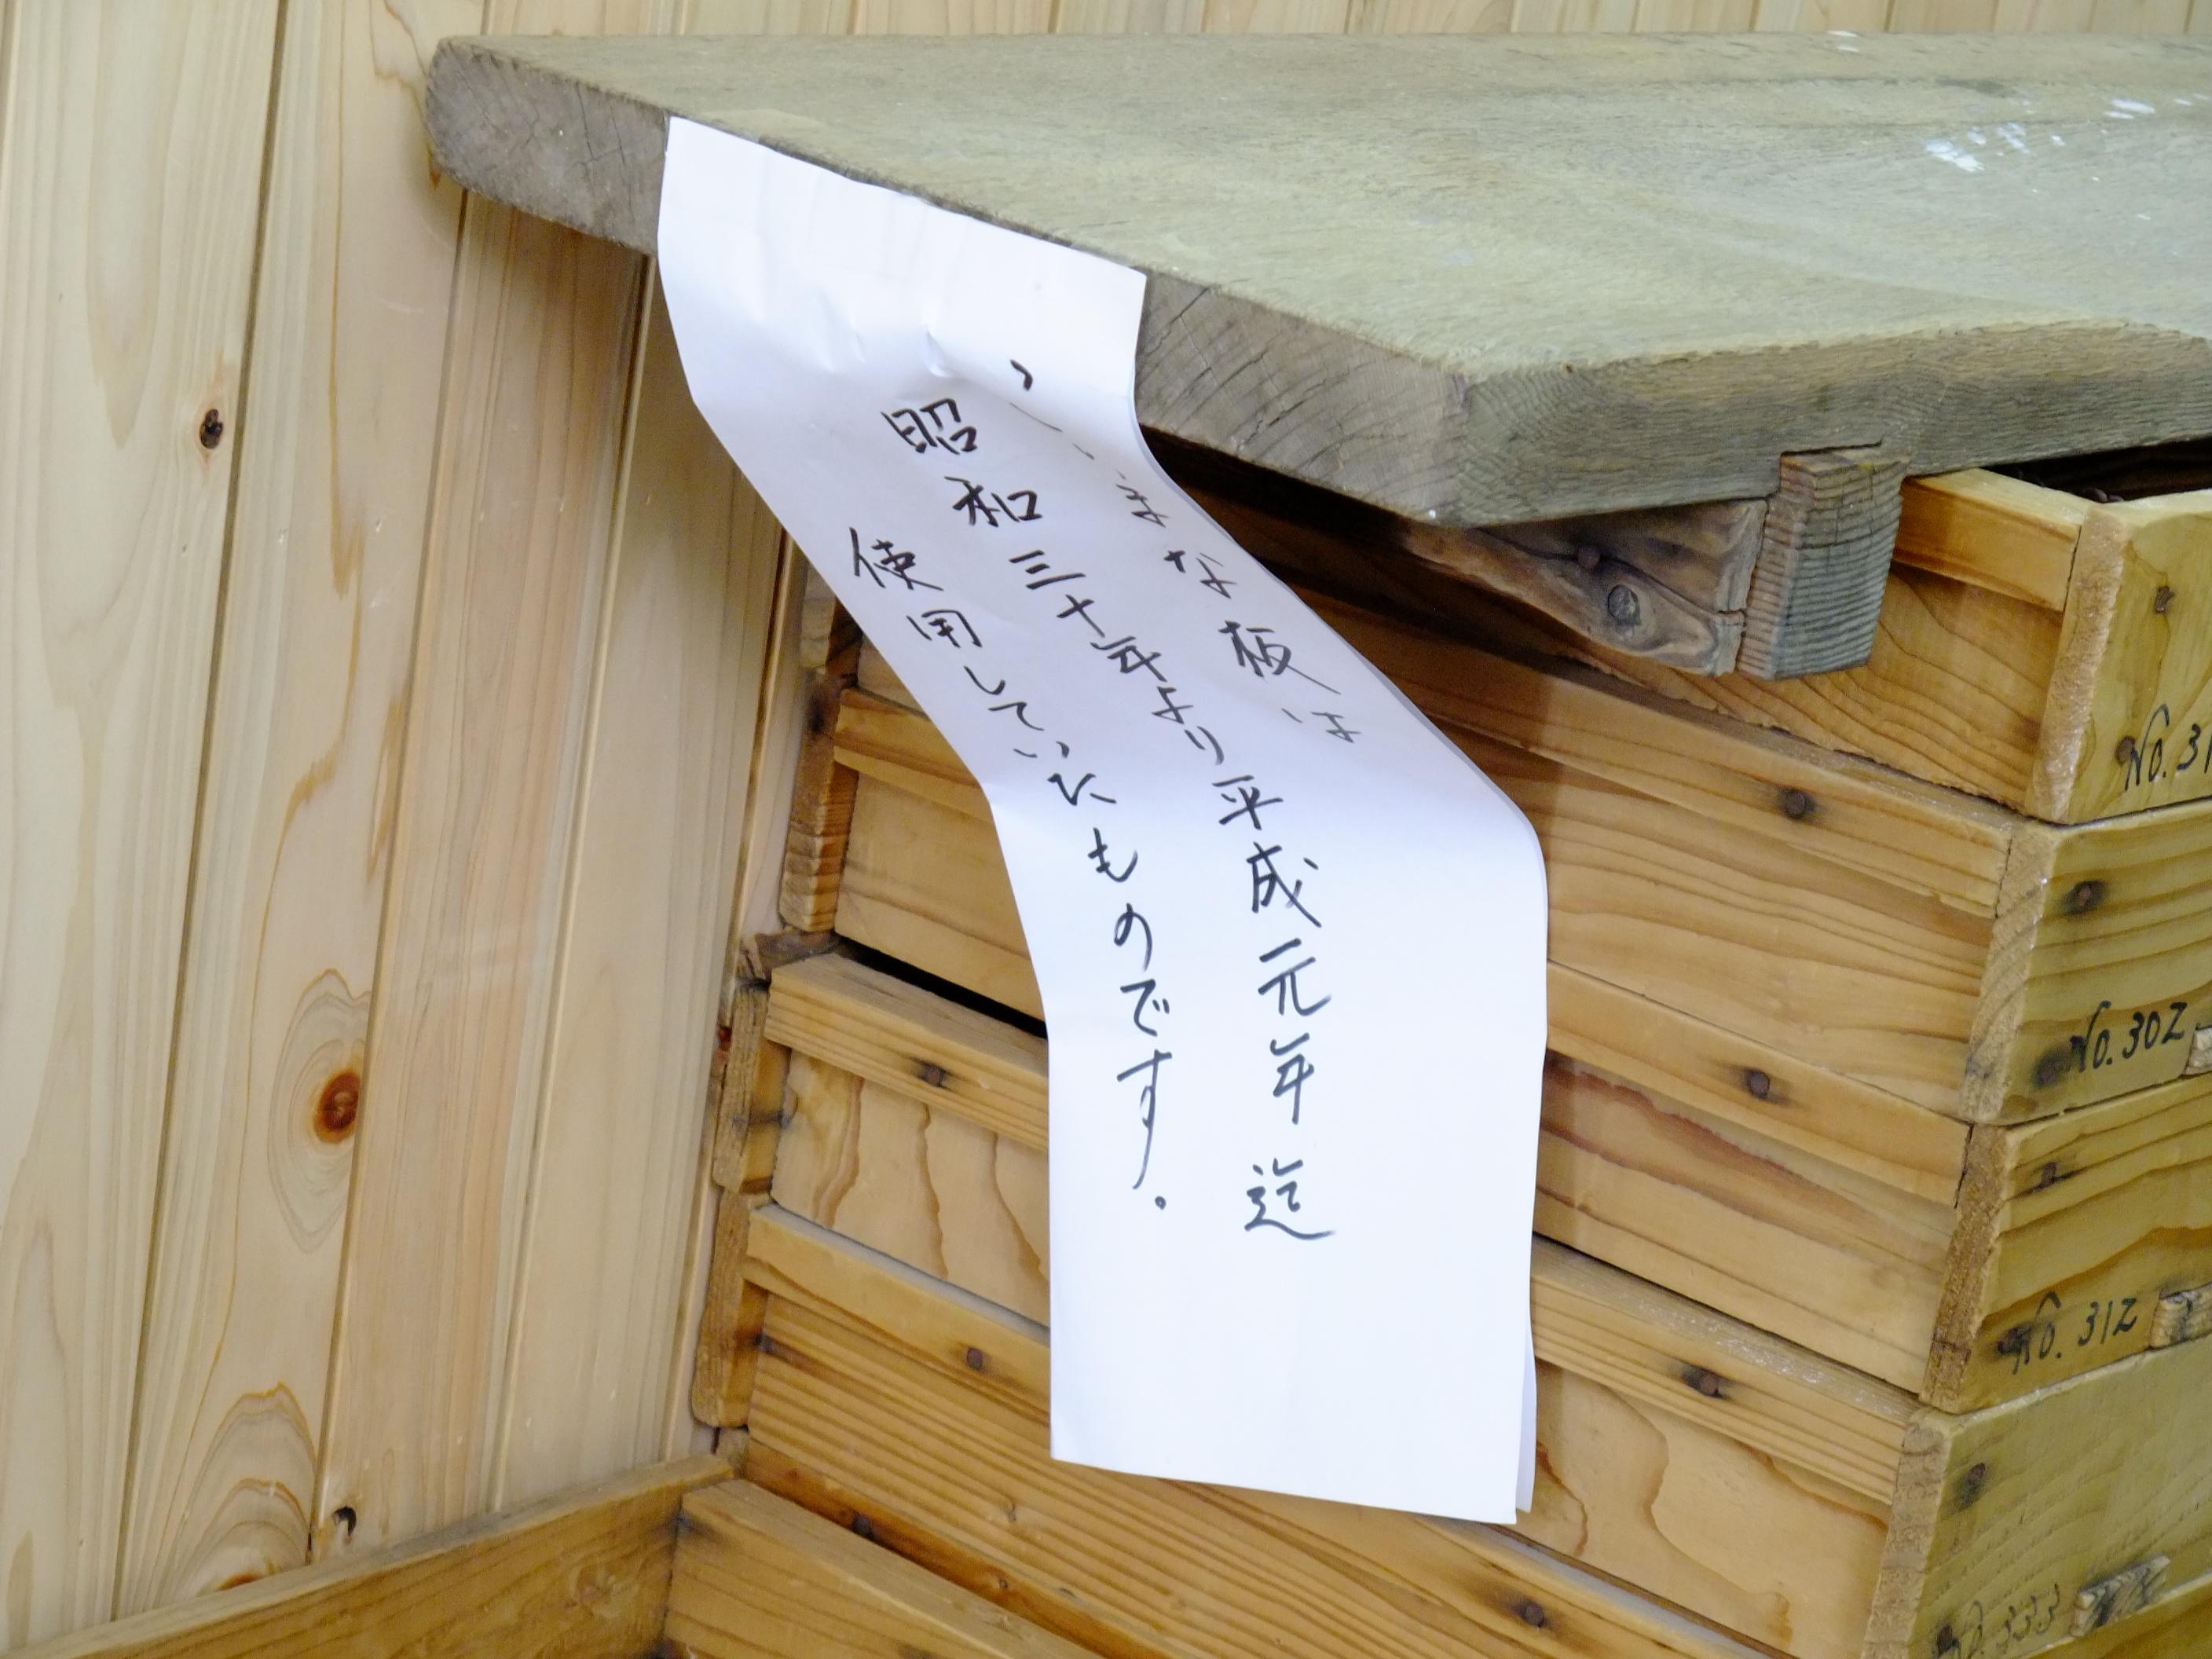 こいまな板は
昭和三十年より平成元年迄
使用していたものです。
No.31
No.302
No.312
No.333